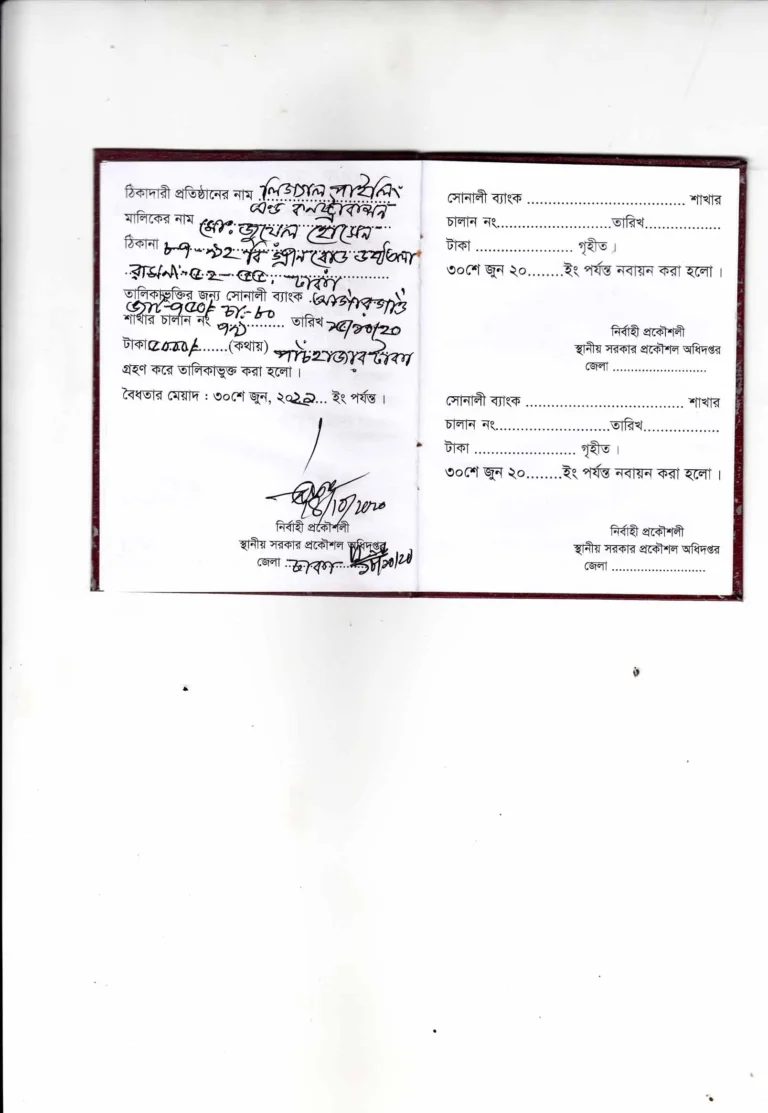 ঠিকাদারী প্রতিষ্ঠানের নাম লিগ্যাল পাইলিং
এন্ড কনস্ট্রাকশন
মালিকের নাম মোঃ জুয়েল হোসেন
ঠিকানা ৮৭-৯২ বি গ্রীন রোড
ঢাকা
তালিকাভুক্তির জন্য সোনালী ব্যাংক
শাখার চালান নং ........... তারিখ ১৫/১০/২০
টাকা ৫০০০/-......(কথায়) পাঁচ হাজার টাকা
গ্রহণ করে তালিকাভুক্ত করা হলো।
বৈধতার মেয়াদ : ৩০শে জুন, ২০২১... ইং পর্যন্ত।
নির্বাহী প্রকৌশলী
স্থানীয় সরকার প্রকৌশল অধিদপ্তর
জেলা ..ঢাকা
সোনালী ব্যাংক ........................................ শাখার
চালান নং............................তারিখ...................
টাকা ......................... গৃহীত।
৩০শে জুন ২০........ইং পর্যন্ত নবায়ন করা হলো।
নির্বাহী প্রকৌশলী
স্থানীয় সরকার প্রকৌশল অধিদপ্তর
জেলা ..........................
সোনালী ব্যাংক ........................................ শাখার
চালান নং............................তারিখ...................
টাকা .......................... গৃহীত।
৩০শে জুন ২০........ইং পর্যন্ত নবায়ন করা হলো।
নির্বাহী প্রকৌশলী
স্থানীয় সরকার প্রকৌশল অধিদপ্তর
জেলা ..........................